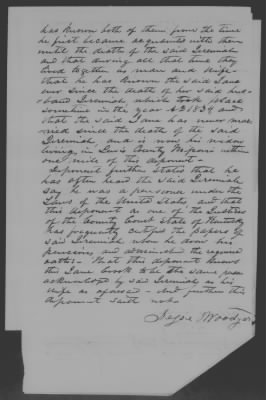 has known both of them from the time
he first became acquainted with them
until the death of the said Jeremiah
and that during all that time they
lived together as man and wife -
that he has known the said Jane
ever since the death of her said hus-
band Jeremiah which took place
sometime in the year A D 1839 and
that the said Jane has never mar-
ried since the death of the said
Jeremiah and is now his widow
living in Lewis County Missouri within
one mile of this deponent -
Deponent further states that he
has often heard the said Jeremiah
say he was a pensioner under the
Laws of the United States, and that
this deponent as one of the Justices
of the County Court State of Kentucky
has frequently certified the papers of
said Jeremiah when he drew his
pensions and administered the required
oaths - that this deponent knows
this Jane to be the same
acknowledged by said Jeremiah as his
wife as aforesaid - And further this
deponent saith not -